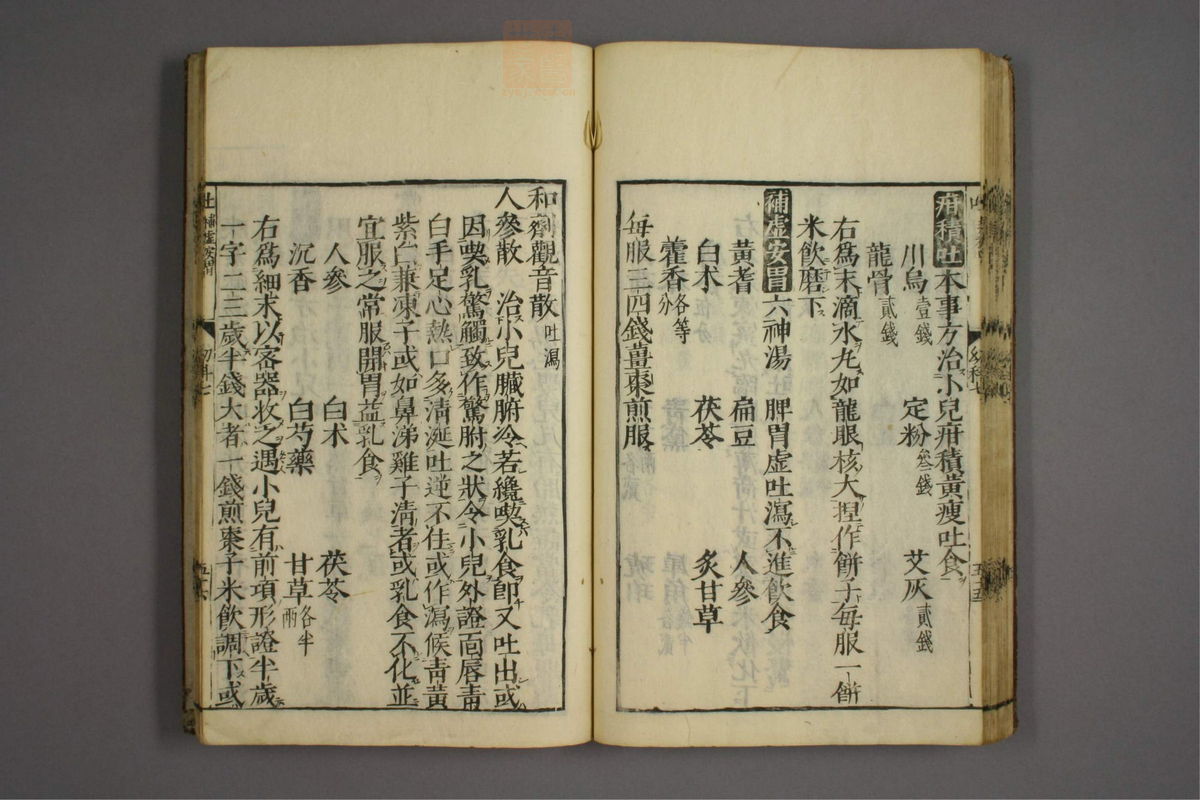 疳積吐 本事方治小兒疳積黃瘦吐食
川烏壹錢 定粉叄錢 艾灰貳錢
龍骨貳錢
右爲末滴水丸如龍眼核大捏作餅子每服一餅
米飲磨下
補虛安胃 六神湯 脾胃虛吐瀉不進飲食
黃耆 扁豆 人參
白朮 茯苓 炙甘草
藿香各等分
每服三四錢薑棗煎服
和劑觀音散吐瀉
人參散 治小兒臟腑冷若纔喫乳食即又吐出或
因喫乳驚觸致作驚胕之狀令小兒外證面唇靑
白手足心熱口多清涎吐逆不住或作瀉候靑黃
紫白兼凍子或如鼻涕雞子淸者或乳食不化並
宜服之常服開胃益乳食
人參 白朮 茯苓
沉香 白芍藥 甘草各半兩
右爲細末以密器收之遇小兒有前項形證半歲
十字二三歲半錢大者一錢煎棗子米飲調下或
吐 補虛安胃 幼科七 五十六